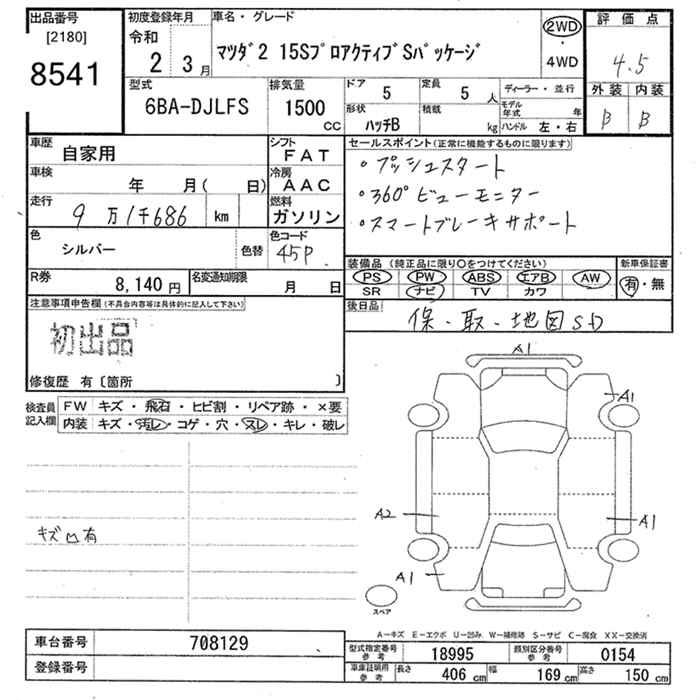 出品番号
[2180]
8541
初度登録年月
令和
2 3月
車名・グレード
マツダ2 15SプロアクティブSパッケージ
2WD
・
4WD
評価点
4.5
外装 内装
B B
型式
6BA-DJLFS
排気量
1500
CC
ドア
5
定員
5人
形状
ハッチB
積載
kg
ディーラー・並行
モデル年式 年
ハンドル 左・右
車歴
自家用
シフト
FAT
車検
年 月( 日)
冷房
AAC
走行
9万1千686 km
燃料
ガソリン
色
シルバー
色替
色コード
45P
R券
8,140円
名変通知期限
月 日
セールスポイント(正常に機能するものに限ります)
・プッシュスタート
・360°ビューモニター
・スマートブレーキサポート
装備品(純正品に限り○をつけてください)
PS PW ABS エアB AW
SR ナビ TV カワ
新車保証書
有・無
後日品
保・取・地図SD
注意事項申告欄(不具合内容等は具体的に記入して下さい)
初出品
修復歴 有〔箇所 〕
検査員記入欄
FW キズ・飛石・ヒビ割・リペア跡・×要
内装 キズ・汚レ・コゲ・穴・スレ・キレ・破レ
キズ凹有
A1
A1
A2
A1
A1
スペア
A-キズ E-エクボ U-凹み W-補修跡 S-サビ C-腐食 XX-交換済
車台番号
708129
登録番号
型式指定番号参考
18995
類別区分番号参考
0154
車庫証明用参考
長さ 406cm 幅 169cm 高さ 150cm